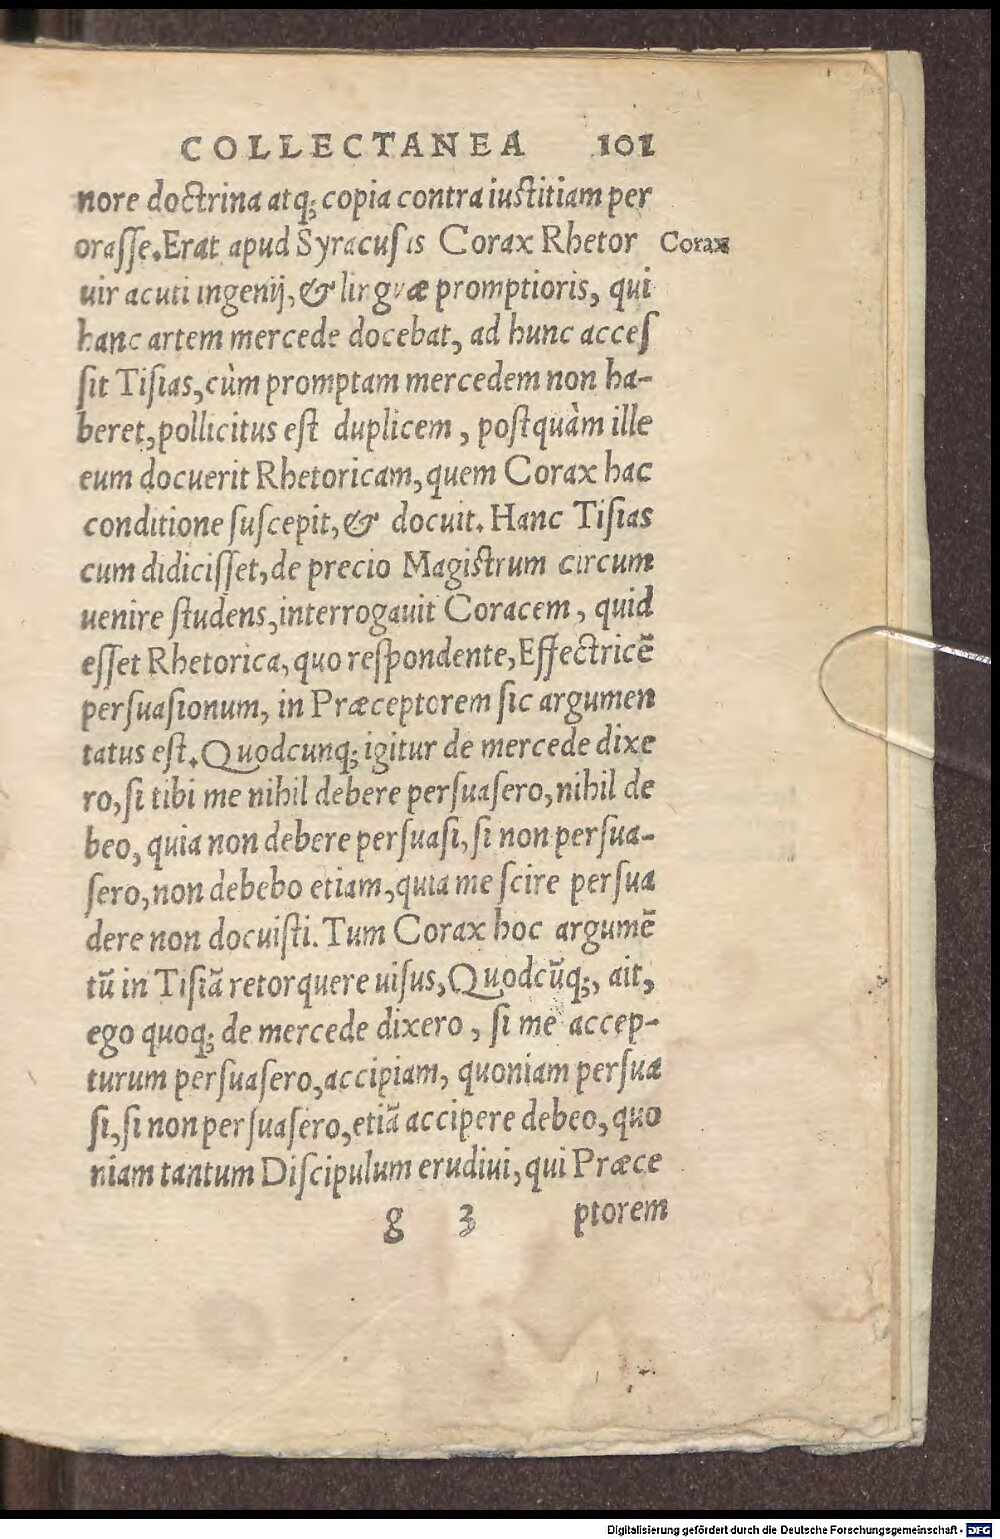 COLLECTANEA 101
nore doctrina atq; copia contra iustitiam per
oraſſe. Erat apud Syracuſis Corax Rhetor Corax
uir acuti ingenij, & linguæ promptioris, qui
hanc artem mercede docebat, ad hunc acceſ
ſit Tiſias, cùm promptam mercedem non ha-
beret, pollicitus eſt duplicem, poſtquàm ille
eum docuerit Rhetoricam, quem Corax hac
conditione ſuſcepit, & docuit. Hanc Tiſias
cum didiciſſet, de precio Magiſtrum circum
uenire ſtudens, interrogauit Coracem, quid
eſſet Rhetorica, quo reſpondente, Effectricē
perſuaſionum, in Præceptorem ſic argumen
tatus eſt. Quodcunq; igitur de mercede dixe
ro, ſi tibi me nihil debere perſuaſero, nihil de
beo, quia non debere perſuaſi, ſi non perſua-
ſero, non debebo etiam, quia me ſcire perſua
dere non docuiſti. Tum Corax hoc argumē
tū in Tiſiā retorquere uiſus, Quodcūq;, ait,
ego quoq; de mercede dixero, ſi me accep-
turum perſuaſero, accipiam, quoniam perſua
ſi, ſi non perſuaſero, etiā accipere debeo, quo
niam tantum Diſcipulum erudiui, qui Præce
g 3 ptorem
Digitalisierung gefördert durch die Deutsche Forschungsgemeinschaft - DFG